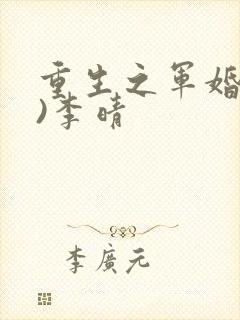 重生之军婚
)李晴
李廣元